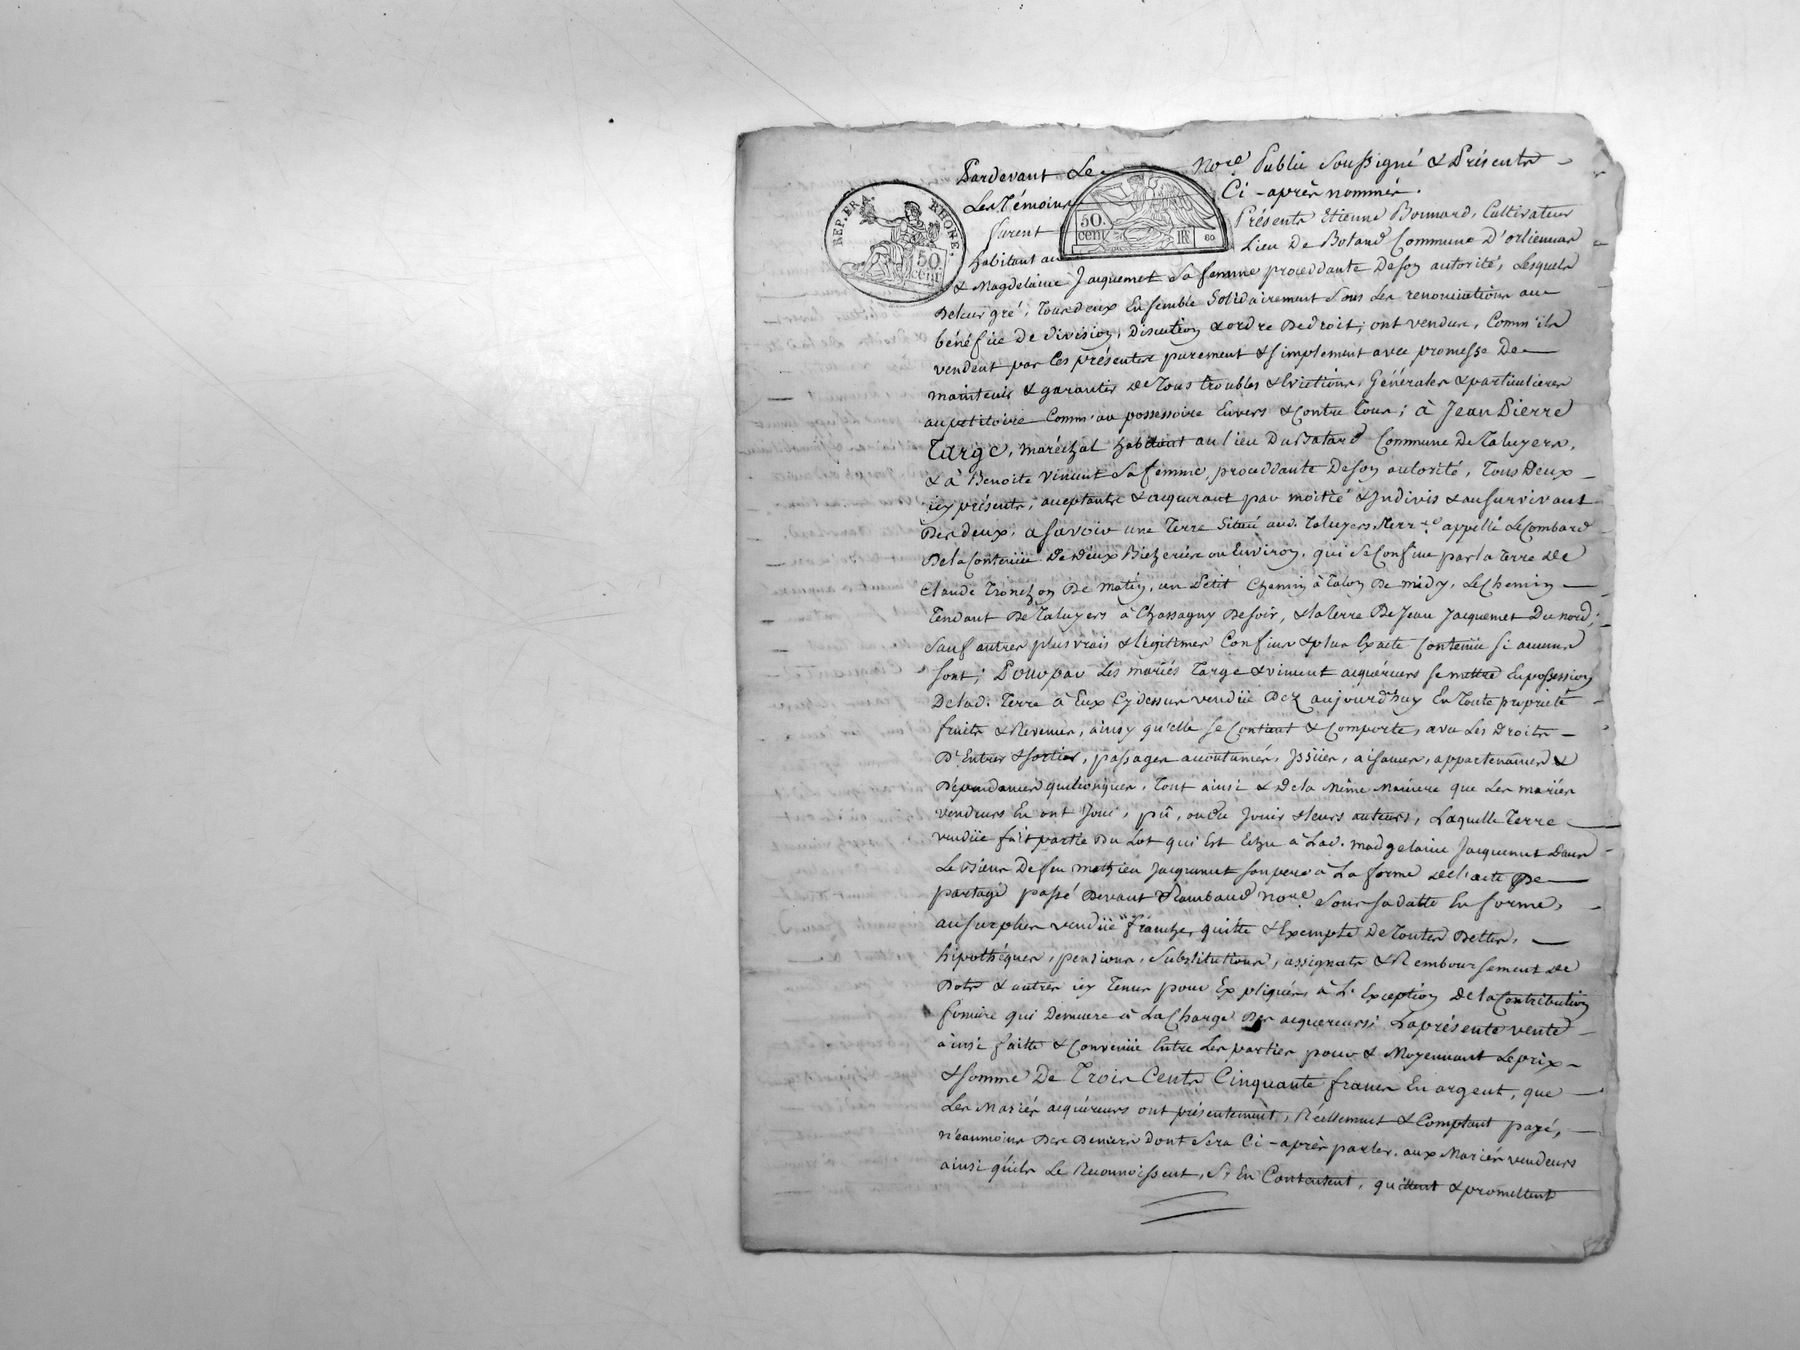 Pardevant Le Nore. Public Soussigné & Présents
Les Témoins Ci-après nommés.
furent Présents Etienne Bonnard, Cultivateur
habitant au Lieu De Botand Commune D'orlienas
& Magdelaine Jacquemet Sa femme proceddante De son autorité, Lesquels
De leur gré, Tous deux Ensemble Solidairement Sous Les renonciations au
bénéfice de division, Discution & ordre De droit; ont vendus, Comm'ils
vendent par Ces présentes purement & simplement avec promesse De
maintenir & garantir de Tous troubles & Evictions, Générales & particulieres
au petitoire Comm'au possessoire Envers & Contre Tous; à Jean Pierre
Targe, maréchal habitant au lieu Du Batard Commune De Taluyers,
& à Benoite Vincent Sa femme, proceddante De son autorité, Tous Deux
icy présents, acceptants & acquerant par moitié & Indivis & au survivant
Des deux, a savoir une Terre Située aud. Taluyers Terrre. appellé Le Combard
De la Contenüe De Deux Bicherées ou Environ, qui se Confine par la Terre De
Claude Tronchon De matin, un Petit Chemin à Talon De midy, Le Chemin
Tendant De Taluyers à Chassagny De soir, & la Terre De Jean Jacquemet Du nord,
Sauf autres plus vrais & légitimes Confins & plus Exacte Contenüe si aucuns
sont; Pour par Les mariés Targe & vincent acquéreurs se mettre En possession
De lad. Terre à Eux Cy dessus vendüe Dez aujourd'huy En Toute propriété
fruits & Revenus, ainsy qu'elle se Contient & Comporte, avec Les Droits
D'Entrer & sortir, passages accoutumés, Issües, aisances, appartenances &
Dépendances quelconques, Tout ainsi & De la Même Maniere que Les mariés
vendeurs En ont Joui, pû, ou Dû Jouir & leurs auteurs, Laquelle Terre
vendüe fait partie Du Lot qui Est Echu à Lad. madgelaine Jacquemet Dans
Les Biens De feu mathieu Jacquemet son pere à La forme de l'acte De
partage passé Devant Rambaud Nore. Sous sa datte En forme,
au surplus vendüe franche, quitte & Exempte De Toutes Dettes,
hipothéques, pensions, Substitutions, assignats & Remboursement de
Dots & autres icy Tenus pour Expliqués, à L'Exception De la Contribution
fonciere qui Demeure à La Charge Des acquereurs; La présente vente
ainsi faitte & Convenüe Entre Les parties pour & Moyennant Le prix
& somme De Trois Cents Cinquante francs En argent, que
Les Mariés acquéreurs ont présentement, Réellement & Comptant payé,
n'eaumoins Des Deniers dont Sera Ci-après parler, aux Mariés vendeurs
ainsi qu'ils Le Reconnoissent, S'En Contentent, quittent & promettent
REP. FRA.
RHONE.
50
cent
50.
cent